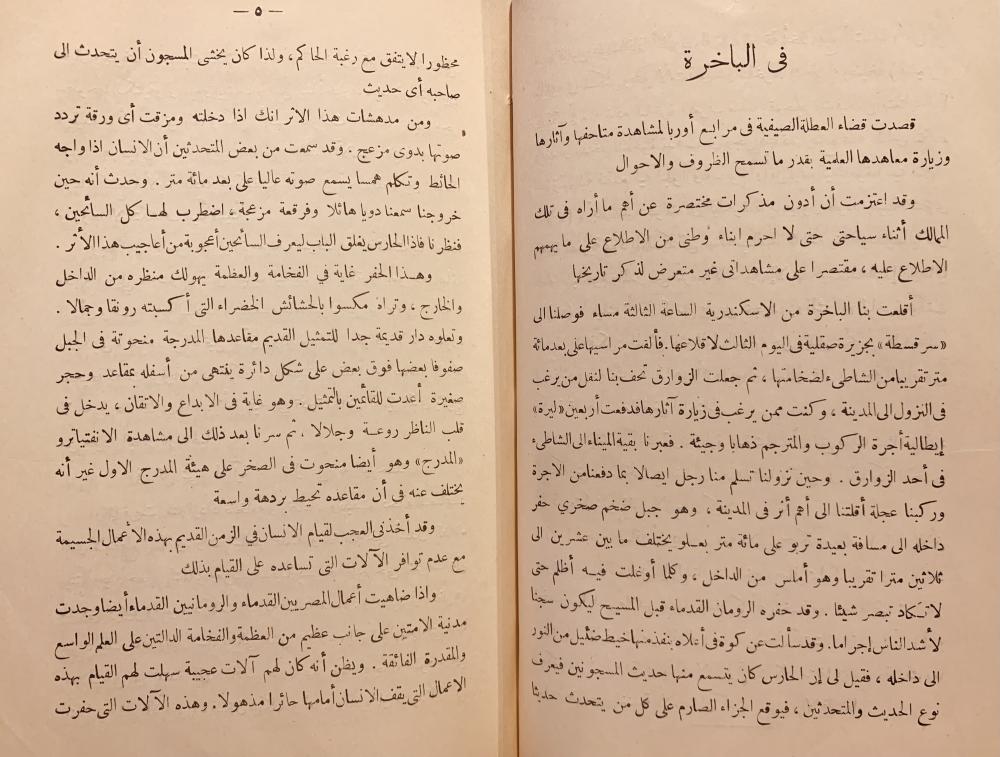 فى الباخرة
قصدت قضاء العطلة الصيفية فى مرابع أوربا لمشاهدة متاحفها وآثارها
وزيارة معاهدها العلمية بقدر ما تسمح الظروف والاحوال
وقد اعتزمت أن أدون مذكرات مختصرة عن أهم ما أراه فى تلك
الممالك أثناء سياحتى حتى لا احرم ابناء وطنى من الاطلاع على ما يهمهم
الاطلاع عليه ، مقتصرا على مشاهداتى غير متعرض لذكر تاريخها
أقلعت بنا الباخرة من الاسكندرية الساعة الثالثة مساء فوصلنا الى
«سرقسطة» بجزيرة صقلية فى اليوم الثالث لاقلاعها . فألقت مراسيها على بعد مائة
متر تقريبا من الشاطىء لضخامتها ، ثم جعلت الزوارق تحف بنا لنقل من يرغب
فى النزول الى المدينة ، وكنت ممن يرغب فى زيارة آثارها فدفعت أربعين «ليرة»
إيطالية أجرة الركوب والمترجم ذهابا وجيئة . فعبرنا بقية الميناء الى الشاطىء
فى أحد الزوارق . وحين نزولنا تسلم منا رجل ايصالا بما دفعنا من الاجرة
وركبنا عجلة أقلتنا الى أهم أثر فى المدينة ، وهو جبل ضخم صخري حفر
داخله الى مسافة بعيدة تربو على مائة متر بعلو يختلف ما بين عشرين الى
ثلاثين مترا تقريبا وهو أماس من الداخل ، وكلما أوغلت فيه أظلم حتى
لا تكاد تبصر شيئا . وقد حفره الرومان القدماء قبل المسيح ليكون سجنا
لأشد الناس إجراما . وقد سألت عن كوة فى أعلاه ينفذ منها خيط ضئيل من النور
الى داخله ، فقيل لى إن الحارس كان يتسمع منها حديث المسجونين فيعرف
نوع الحديث والمتحدثين ، فيوقع الجزاء الصارم على كل من يتحدث حديثا
— ٥ —
محظورا لا يتفق مع رغبة الحاكم ، ولذا كان يخشى المسجون أن يتحدث الى
صاحبه أى حديث
ومن مدهشات هذا الاثر انك اذا دخلته ومزقت أى ورقة تردد
صوتها بدوى مزعج . وقد سمعت من بعض المتحدثين أن الانسان اذا واجه
الحائط وتكلم همسا يسمع صوته عاليا على بعد مائة متر . وحدث أنه حين
خروجنا سمعنا دويا هائلا وفرقعة مزعجة ، اضطرب لها كل السائحين ،
فنظرنا فاذا الحارس يغلق الباب ليعرف السائحين أعجوبة من أعاجيب هذا الأثر .
وهذا الحفر غاية في الفخامة والعظمة يهولك منظره من الداخل
والخارج ، وتراه مكسوا بالحشائش الخضراء التى أكسبته رونقا وجمالا .
وتعلوه دار قديمة جدا للتمثيل القديم مقاعدها المدرجة منحوتة فى الجبل
صفوفا بعضها فوق بعض على شكل دائرة ينتهى من أسفله بمقاعد وحجر
صغيرة أعدت للقائمين بالتمثيل . وهو غاية فى الابداع والاتقان ، يدخل فى
قلب الناظر روعة وجلالا . ثم سرنا بعد ذلك الى مشاهدة الانفتياترو
«المدرج» وهو أيضا منحوت فى الصخر على هيئة المدرج الاول غير أنه
يختلف عنه فى أن مقاعده تحيط بردهة واسعة
وقد أخذنى العجب لقيام الانسان في الزمن القديم بهذه الأعمال الجسيمة
مع عدم توافر الآلات التى تساعده على القيام بذلك
واذا ضاهيت أعمال المصريين القدماء والرومانيين القدماء أيضا وجدت
مدنية الامتين على جانب عظيم من العظمة والفخامة الدالتين على العلم الواسع
والمقدرة الفائقة . ويظن أنه كان لهم آلات عجيبة سهلت لهم القيام بهذه
الاعمال التى يقف الانسان أمامها حائرا مذهولا . وهذه الآلات التى حفرت